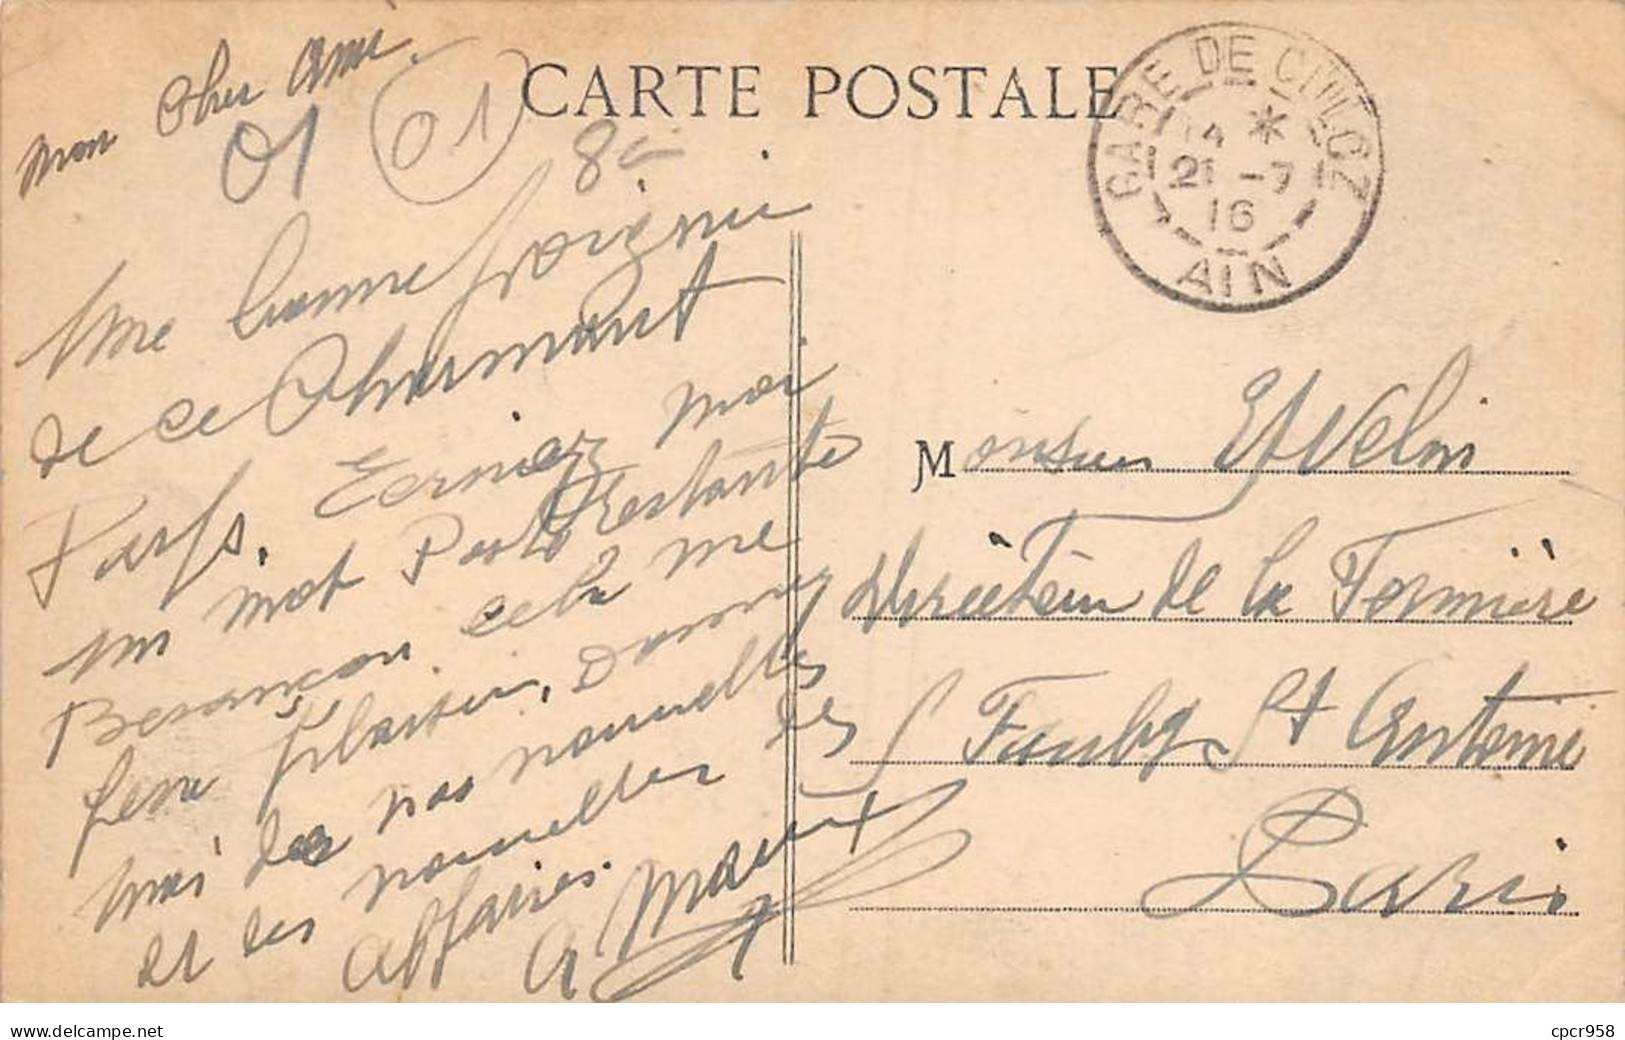 CARTE POSTALE
GARE DE CULOZ
14 *
21 -7
16
AIN
01
01
8
Mon Cher Ami.
Une bonne Poignée
de ce Charmant
Pays. Ecrivez moi
un mot Poste Restante
Besançon. cela me
fera plaisir. Donnez
moi de vos nouvelles
et des nouvelles des
affaires.
Monsieur
Directeur de la Fermière
Faubg St Antoine
Paris
www.delcampe.net
cpcr958